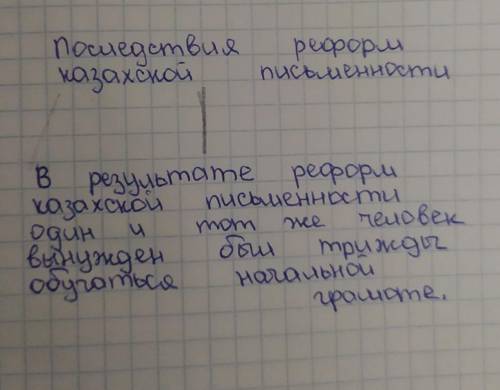 Последствия реформ
казахской письменности
В результате реформ
казахской письменности
один и тот же человек
вынужден был трижды
обучаться начальной
грамоте.